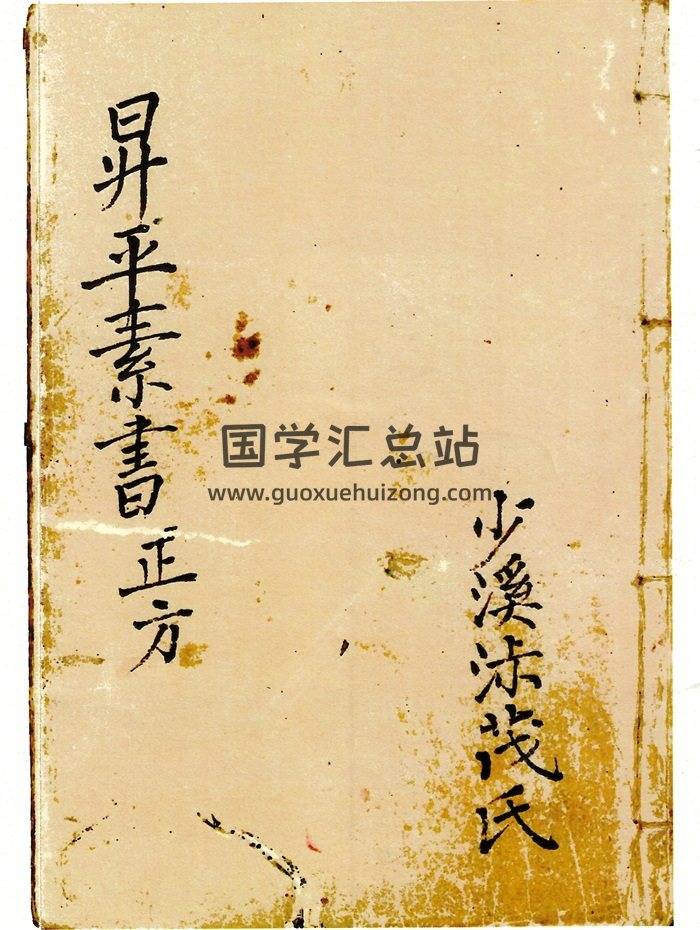 昇平素書正方
少溪沐茂氏
国学汇总站
www.guoxuehuizong.com